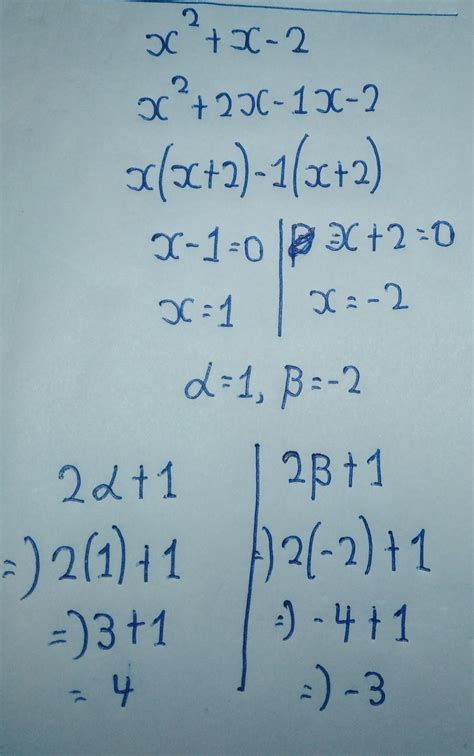 x² + x - 2
x² + 2x - 1x - 2
x(x+2) - 1(x+2)
x - 1 = 0 | x + 2 = 0
x = 1 | x = -2
α = 1, β = -2
2α + 1 | 2β + 1
=) 2(1) + 1 | =) 2(-2) + 1
=) 3 + 1 | =) -4 + 1
= 4 | =) -3